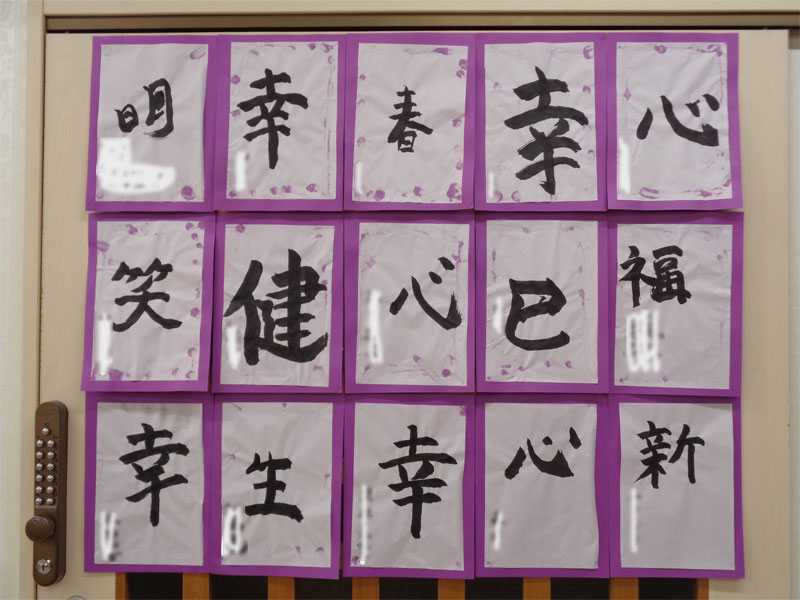 明 幸 春 幸 心
笑 健 心 巳 福
幸 生 幸 心 新